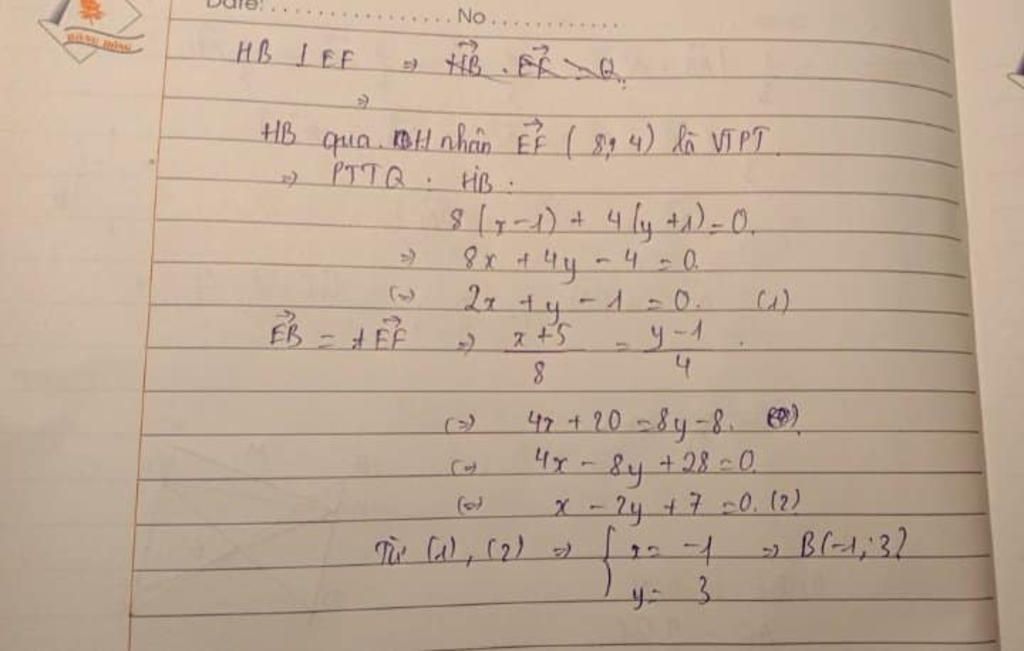 Date: ................. No ............
HỒNG HÀ
HB ⊥ EF ⇒ HB . EF = 0.
⇒
HB qua H nhân EF (8; 4) là VTPT.
⇒ PTTQ . HB :
8(x-1) + 4(y+1)=0.
⇒ 8x + 4y - 4 = 0.
(=) 2x + y - 1 = 0. (1)
EB = t EF ⇒ (x+5)/8 = (y-1)/4 .
(=) 4x + 20 = 8y - 8.
(=) 4x - 8y + 28 = 0.
(=) x - 2y + 7 = 0. (2)
Từ (1), (2) ⇒ { x = -1 ⇒ B(-1; 3)
y = 3